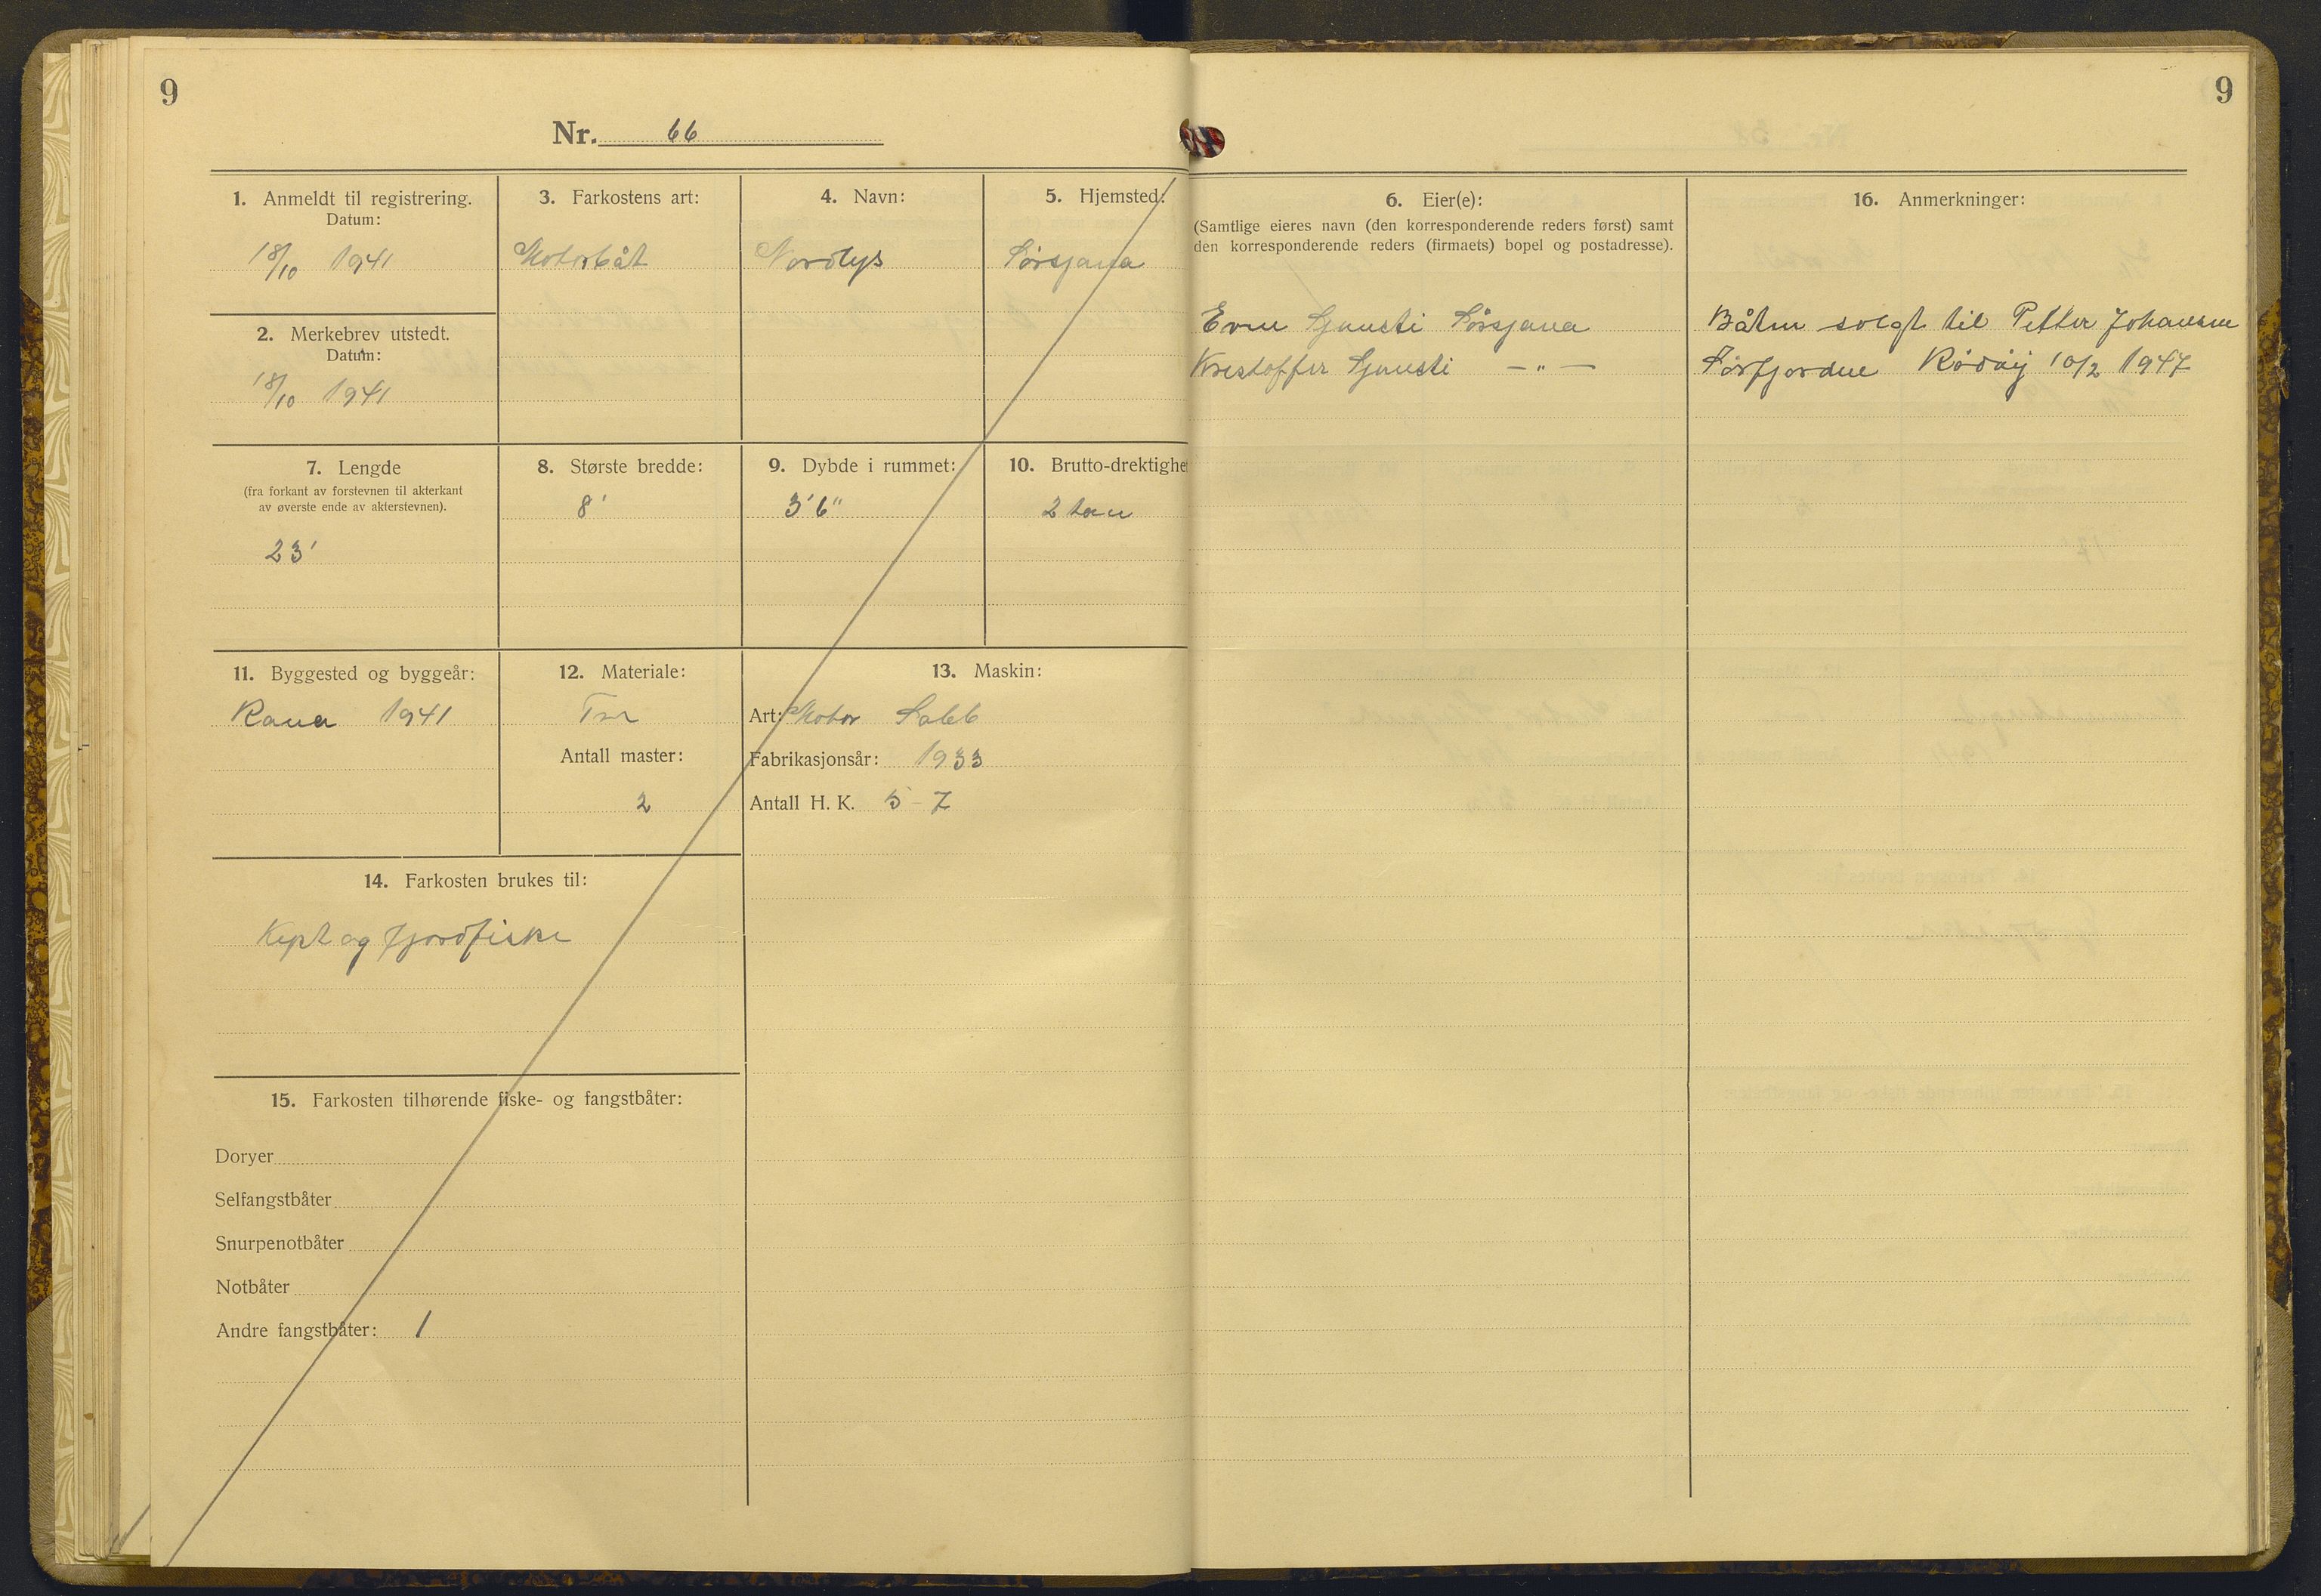 9
9
Nr. 66
1. Anmeldt til registrering.
Datum:
18/10 1941
2. Merkebrev utstedt.
Datum:
18/10 1941
3. Farkostens art:
Motorbåt
4. Navn:
Nordlys
5. Hjemsted:
Sørsjona
6. Eier(e):
(Samtlige eieres navn (den korresponderende reders først) samt
den korresponderende reders (firmaets) bopel og postadresse).
Sørsjona
Kristoffer — " —
16. Anmerkninger:
Båten solgt til Petter Johansen
Sørfjorden Rødøy 10/2 1947
7. Lengde
(fra forkant av forstevnen til akterkant
av øverste ende av akterstevnen).
23'
8. Største bredde:
8'
9. Dybde i rummet:
3'6"
10. Brutto-drektighe
2 ton
11. Byggested og byggeår:
Rana 1941
12. Materiale:
Tre
Antall master:
2
13. Maskin:
Art: Motor Sabb
Fabrikasjonsår: 1933
Antall H. K. 5-7
14. Farkosten brukes til:
Kyst og fjordfiske
15. Farkosten tilhørende fiske- og fangstbåter:
Doryer
Selfangstbåter
Snurpenotbåter
Notbåter
Andre fangstbåter: 1